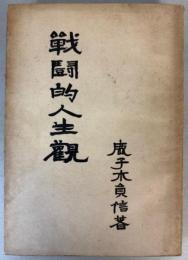 戰鬪的人生觀
鹿子木員信著